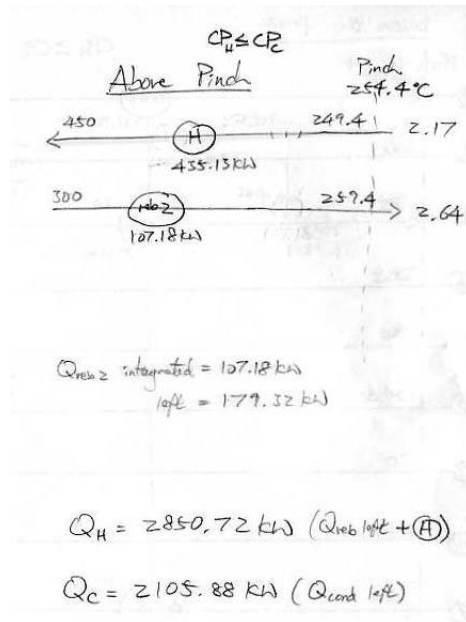 CP_H ≤ CP_C
Above Pinch
Pinch
254.4°C
450 249.4 2.17
H
435.13 kW
300 259.4 2.64
reb2
107.18 kW
Qreb 2 integrated = 107.18 kW
left = 179.32 kW
Q_H = 2850.72 kW (Qreb left + H)
Q_C = 2105.88 kW (Qcond left)